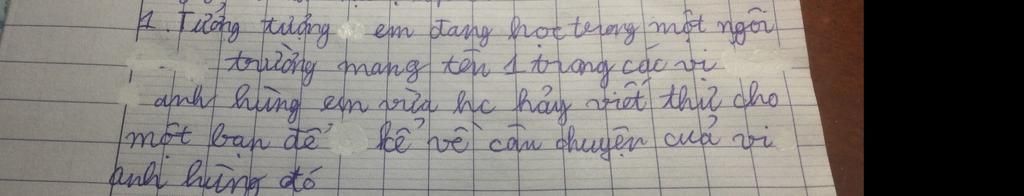 1. Tưởng tượng em đang học trong một ngôi
trường mang tên 1 trong các vị
anh hùng em vừa hc hãy viết thư cho
một bạn để kể về câu chuyện của vị
anh hùng đó